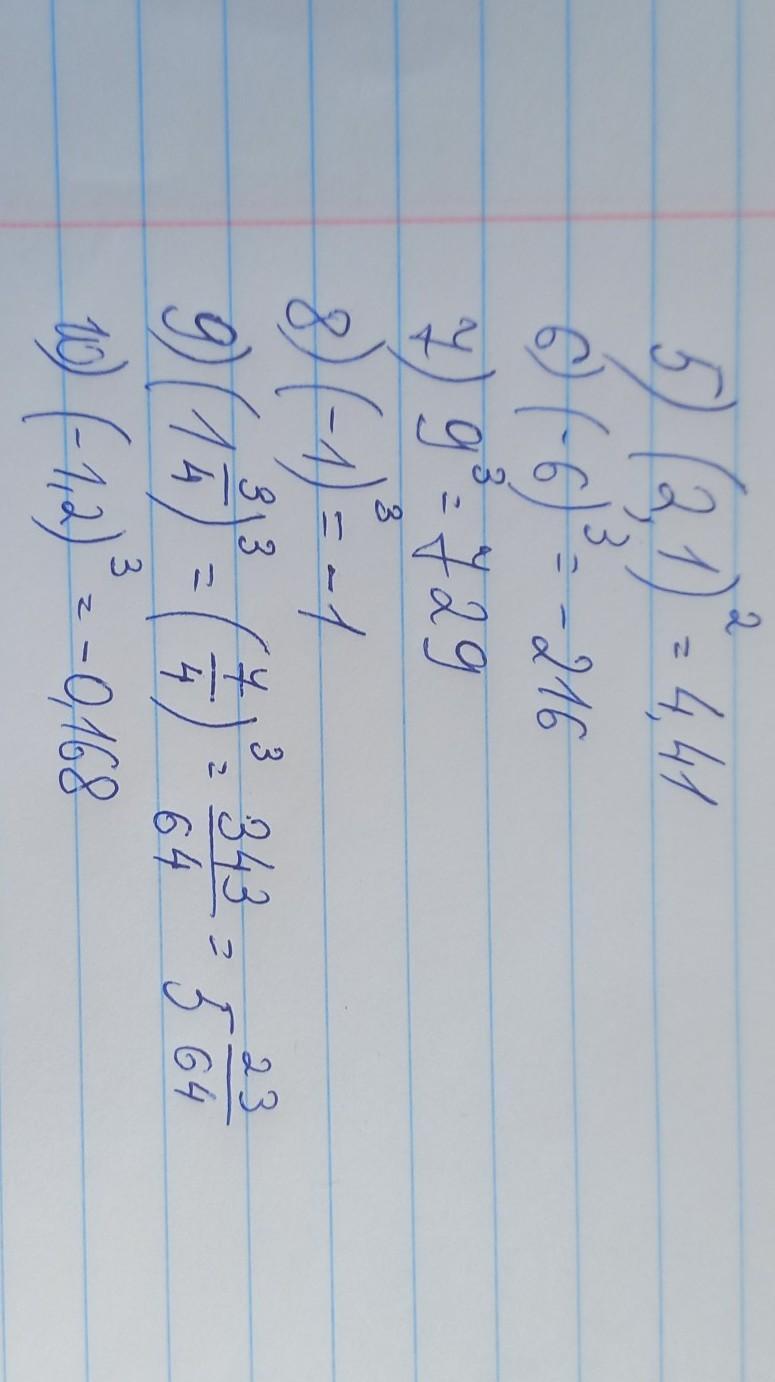 5) (2,1)² = 4,41
6) (-6)³ = -216
7) 9³ = 729
8) (-1)³ = -1
9) (1 3/4)³ = (7/4)³ = 343/64 = 5 23/64
10) (-1,2)³ = -0,168